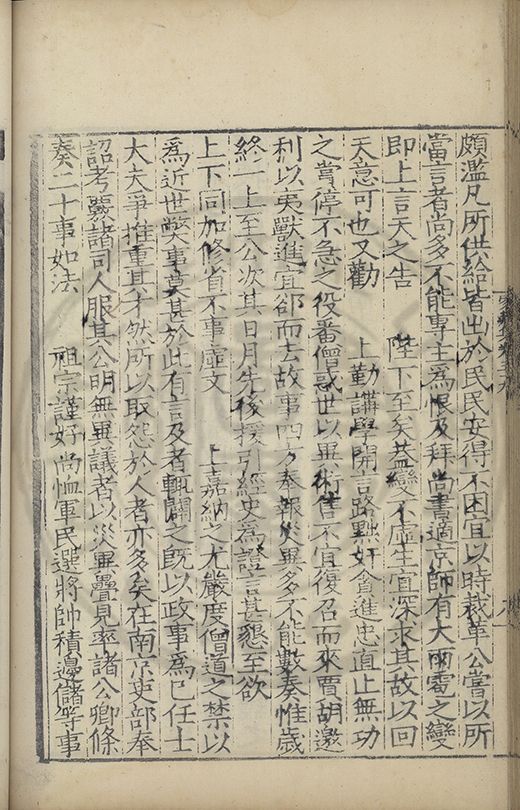 頗濫凡所供給皆出於民民安得不困宜以時裁革公嘗以所
當言者尚多不能專主為恨及拜尚書適京師有大雨雹之變
即上言天之告　陛下至矣蓋變不虛生宜深求其故以回
天意可也又勸　上勤講學開言路黜奸貪進忠直止無功
之賞停不急之役番僧惑世以異術售不宜復召而來賈胡邀
利以夷獸進宜卻而去故事四方奏報災異多不能數奏惟歲
終一上至公次其日月先後援引經史為證言甚懇至欲
上下同加修省不事虛文　上嘉納之尤嚴度僧道之禁以
為近世獘事莫甚於此有言及者輒闢之既以政事為己任士
大夫爭推重其才然所以取怨於人者亦多矣在南京吏部奉
詔考覈諸司人服其公明無異議者以災異疊見率諸公卿條
奏二十事如法　祖宗謹好尚恤軍民選將帥積邊儲等事